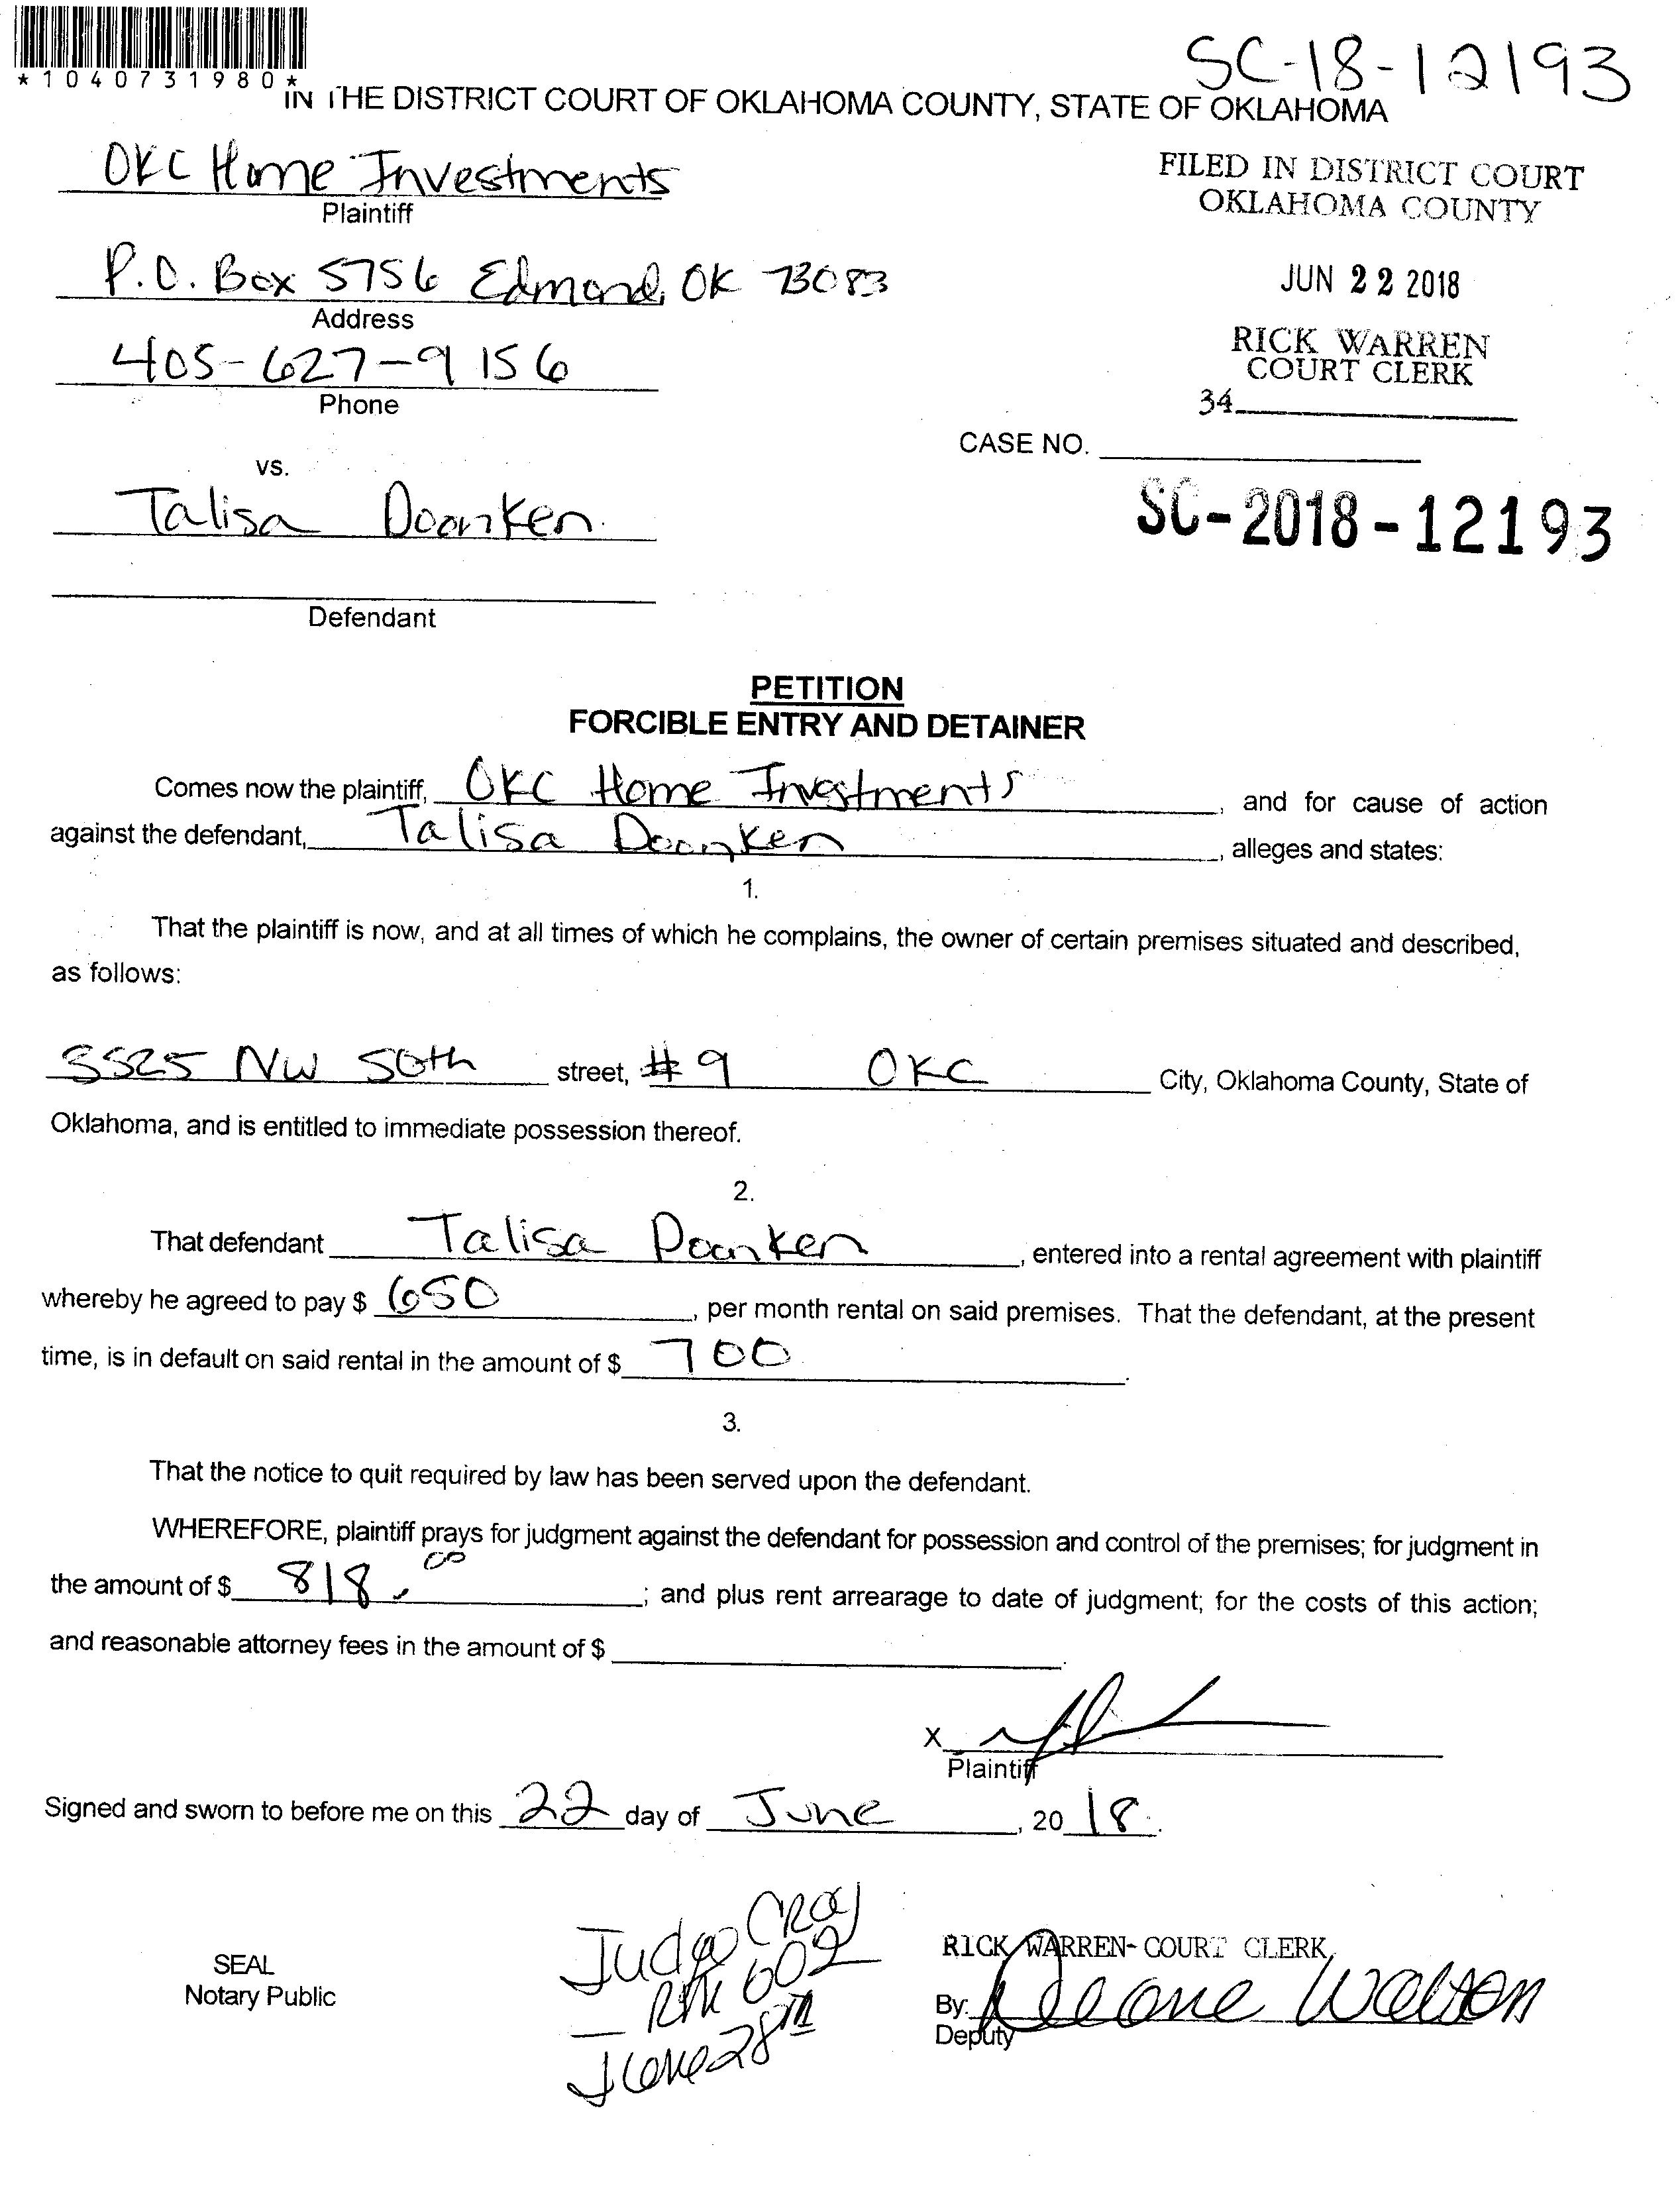 SC-18-12193
*1040731980*
IN THE DISTRICT COURT OF OKLAHOMA COUNTY, STATE OF OKLAHOMA
OKC Home Investments
Plaintiff
FILED IN DISTRICT COURT
OKLAHOMA COUNTY
P.O. Box 5756 Edmond, OK 73083
Address
JUN 22 2018
405-627-9156
Phone
RICK WARREN
COURT CLERK
34
CASE NO.
vs.
Talisa
SC-2018-12193
Defendant
PETITION
FORCIBLE ENTRY AND DETAINER
Comes now the plaintiff, OKC Home Investments, and for cause of action
against the defendant, Talisa, alleges and states:
1.
That the plaintiff is now, and at all times of which he complains, the owner of certain premises situated and described,
as follows:
NW 50th street, #9 OKC City, Oklahoma County, State of
Oklahoma, and is entitled to immediate possession thereof.
2.
That defendant Talisa, entered into a rental agreement with plaintiff
whereby he agreed to pay $ 650, per month rental on said premises. That the defendant, at the present
time, is in default on said rental in the amount of $ 700.
3.
That the notice to quit required by law has been served upon the defendant.
WHEREFORE, plaintiff prays for judgment against the defendant for possession and control of the premises; for judgment in
the amount of $ 818.00; and plus rent arrearage to date of judgment; for the costs of this action;
and reasonable attorney fees in the amount of $
X
Plaintiff
Signed and sworn to before me on this 22 day of June, 2018.
SEAL
Notary Public
Judge
RM 602
June 28TH
RICK WARREN-COURT CLERK
By:
Deputy